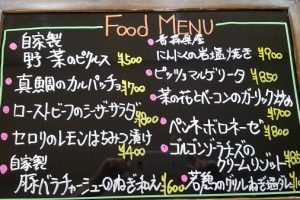 Food MENU
自家製
野菜のピクルス ¥500
真鯛のカルパッチョ ¥700
ローストビーフのシーザーサラダ ¥800
セロリのレモンはちみつ漬け ¥400
自家製
豚バラチャーシューのねぎ和え ¥600
青森県産
にんにくの岩塩焼き ¥900
ピッツァマルゲリータ ¥850
菜の花とベーコンのガーリック炒め ¥700
ペンネボロネーゼ ¥800
ゴルゴンゾーラチーズの
クリームリゾット
若鶏のグリルねぎ塩ダレ